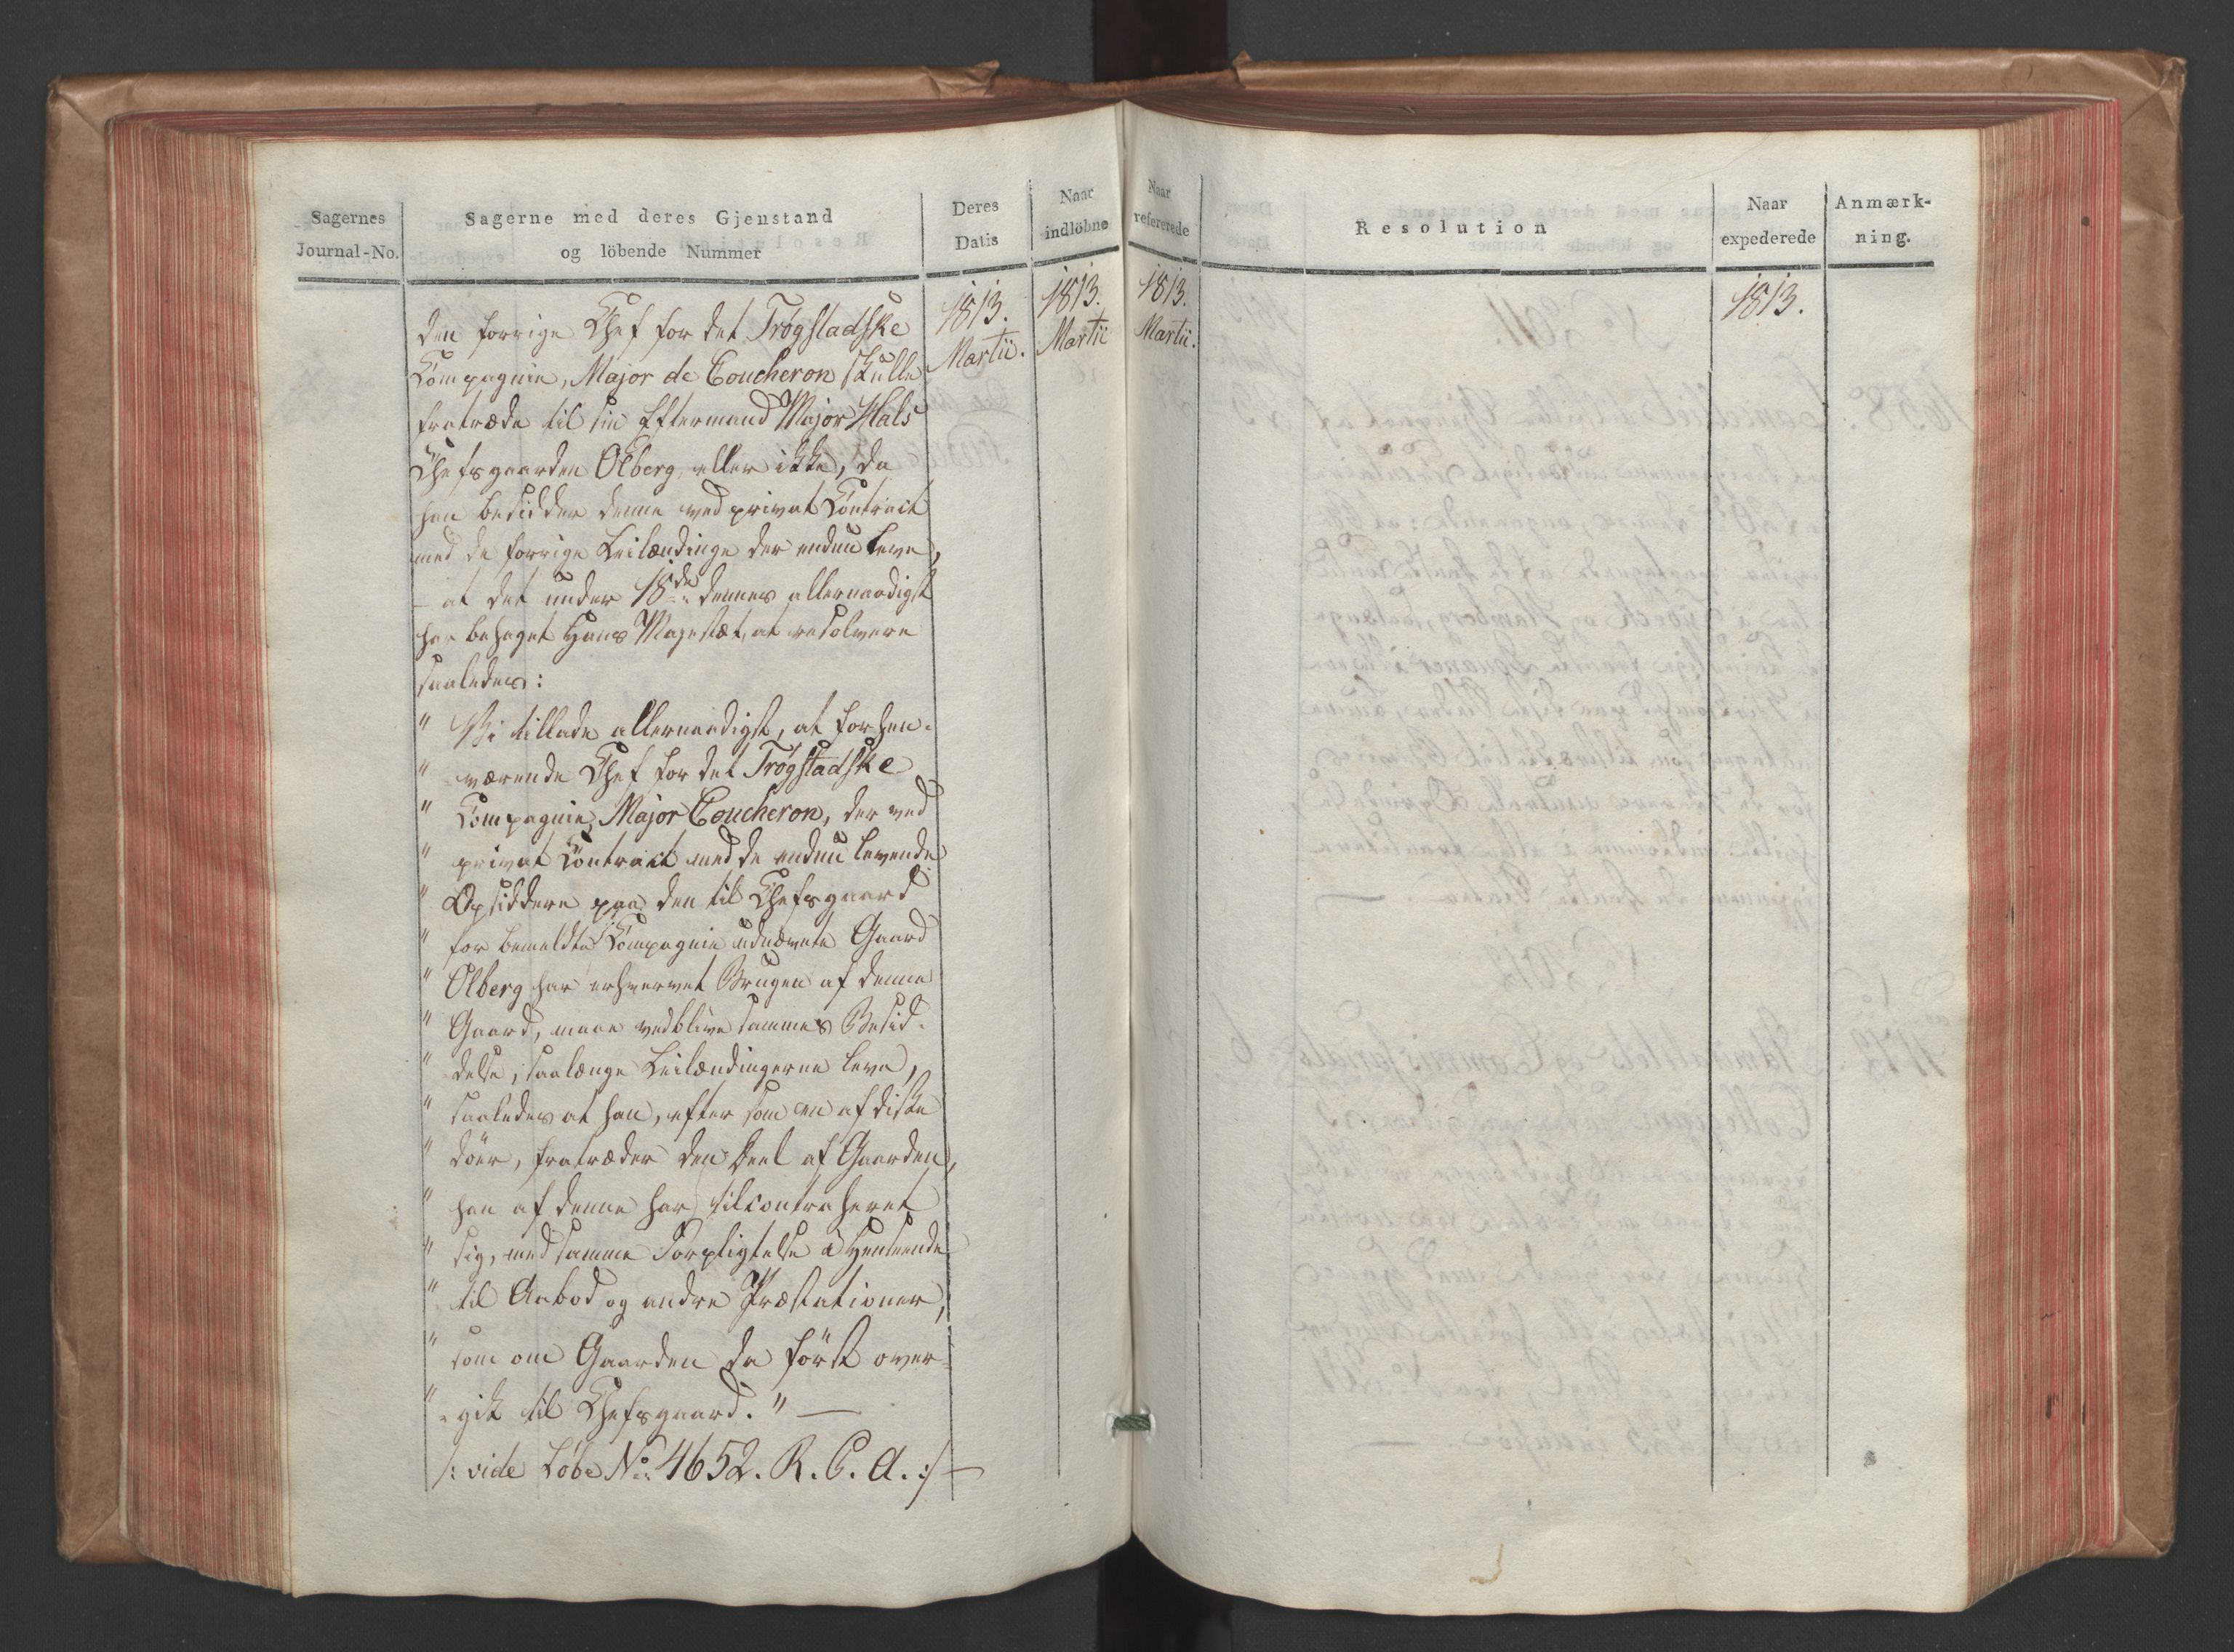 Sagernes
Journal-No.
Sagerne med deres Gjenstand
og löbende Nummer
Deres
Datis
Naar
indlöbne
Naar
refererede
Resolution
Naar
expederede
Anmærk-
ning.
1813.
Martii.
1813.
Martii
1813.
Martii.
1813.
den forrige Chef for det Trøgstadske
Compagnie, Major de Coucheron skulle
fratræde til sin Eftermand Major Hals
Chefsgaarden Olberg, eller ikke, da
han besidder denne ved privat Contract
med de forrige Leilændinge der endnu leve,
- at det under 18de dennes allernaadigst
har behaget Hans Majestæt, at resolvere
saaledes:
" Vi tillade allernaadigst, at forhen-
" værende Chef for det Trøgstadske
" Compagnie, Major Coucheron, der ved
" privat Contract med de endnu levende
" Opsiddere paa den til Chefsgaard
" for bemeldte Compagnie udnævnte Gaard
" Olberg har erhvervet Brugen af denne
" Gaard, maae vedblive sammes Besid-
" delse, saalænge Leilændingerne leve,
" saaledes at han, efter som en af diske
" döer, fratræder den Deel af Gaarden,
" han af denne har tilcontraheret
" sig, med samme Forpligtelse i Henseende
" til Aabod og andre Præstationer,
" som om Gaarden da först over-
" gik til Chefsgaard." —
/: vide Löbe No. 4652. R. C. A. :/ —